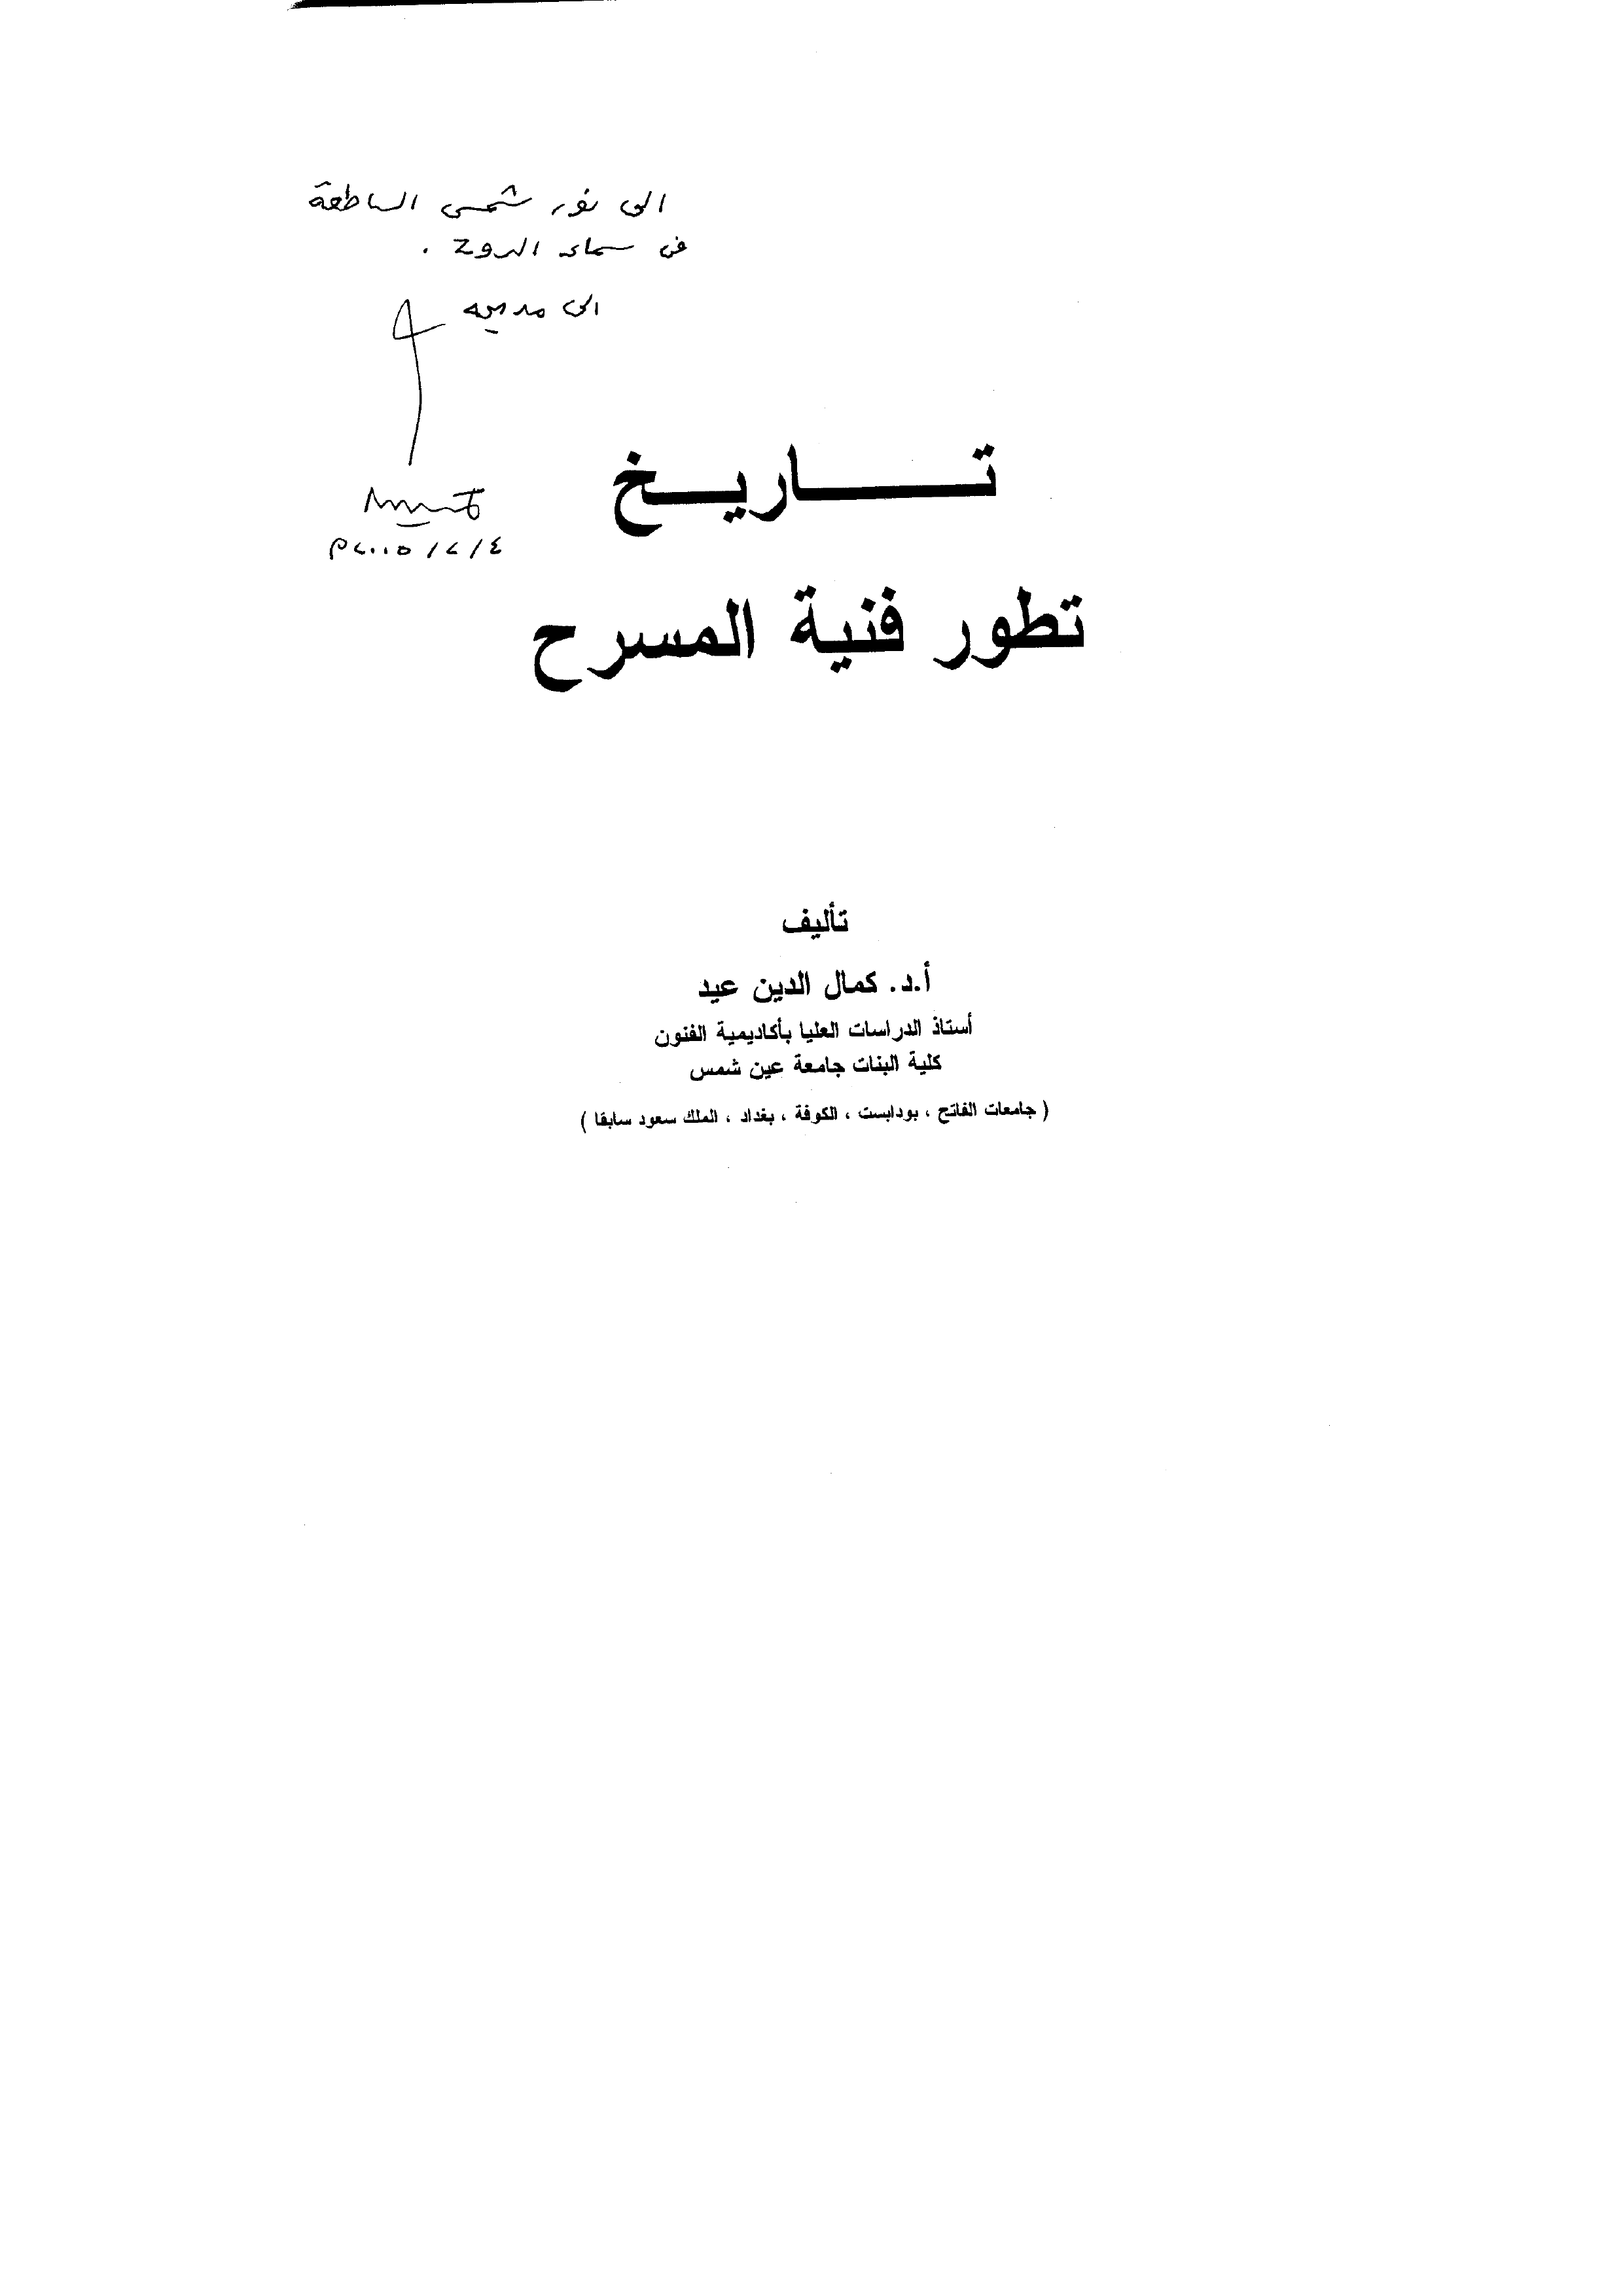 الى نور شمس الساطعة
فى سماء الروح .
الى مديحه
٤ / ٢ / ٢٠٠٥ م
تاريخ
تطور فنية المسرح
تأليف
أ.د. كمال الدين عيد
أستاذ الدراسات العليا بأكاديمية الفنون
كلية البنات جامعة عين شمس
( جامعات الفاتح ، بودابست ، الكوفة ، بغداد ، الملك سعود سابقا )